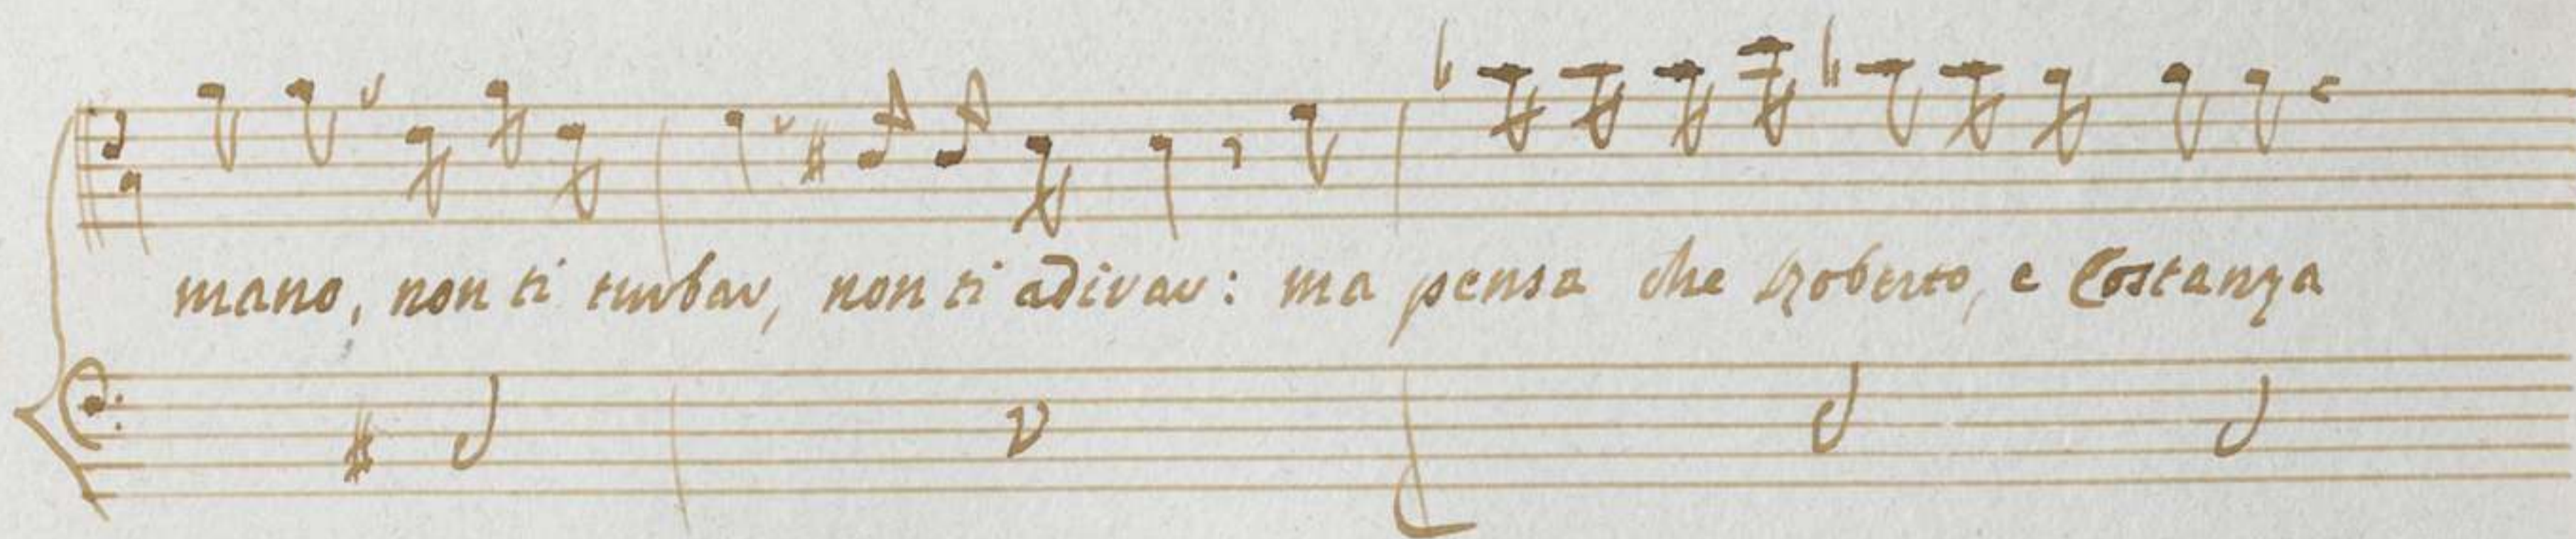 mano, non ti turbar, non ti adirar: ma pensa che Roberto, e Costanza